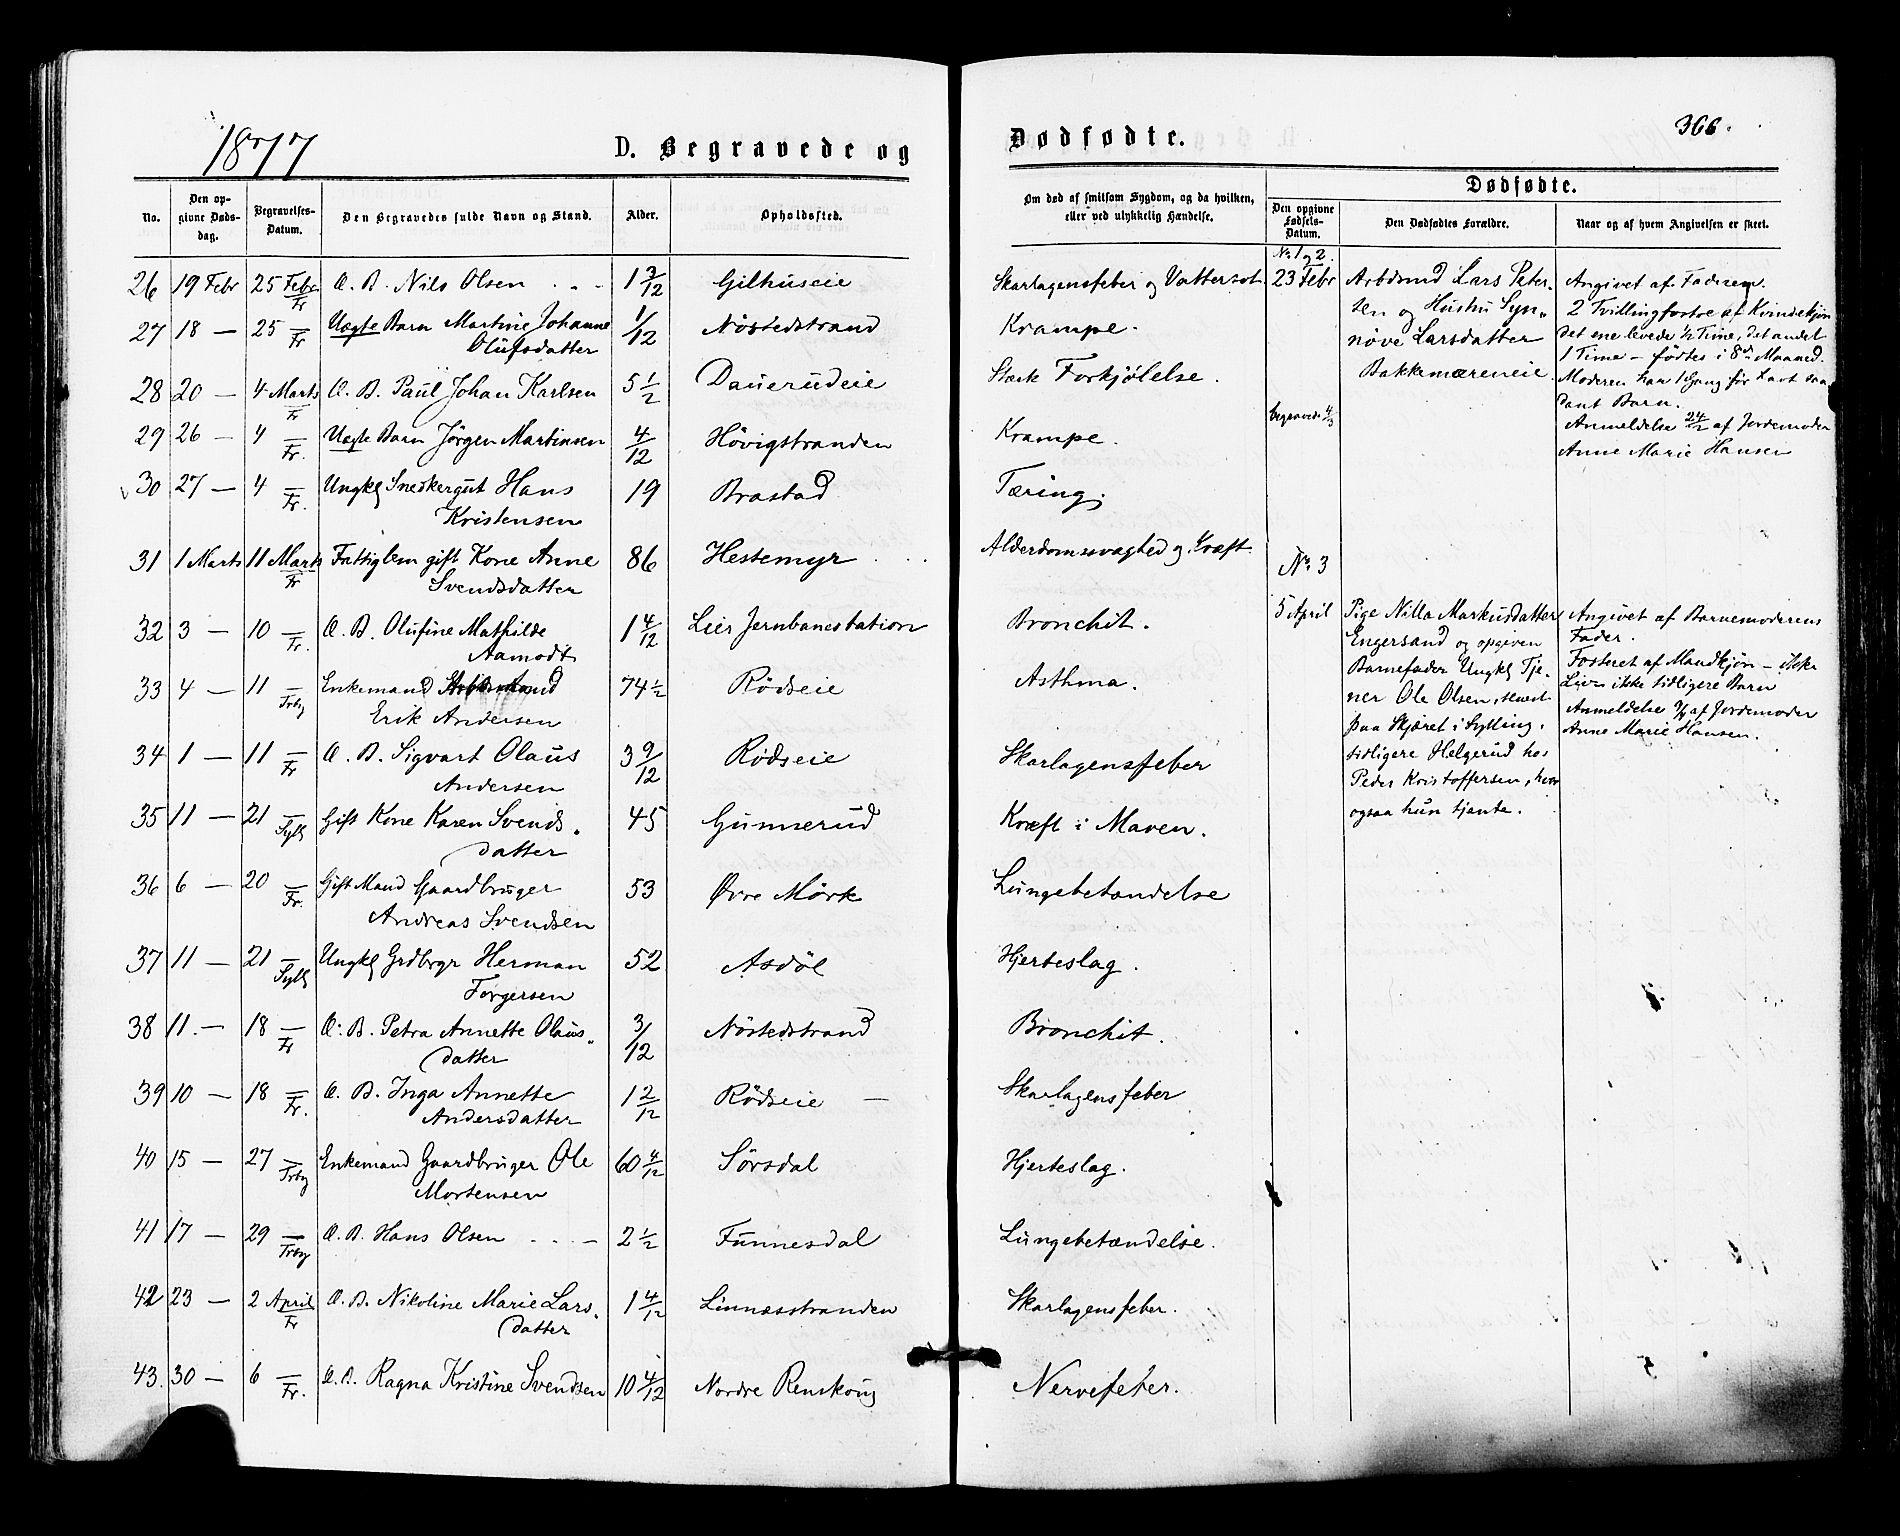 1877
D. Begravede og
No.
Den op-
givne Døds-
dag.
Begravelses-
Datum.
Den Begravedes fulde Navn og Stand.
Alder.
Opholdssted.
26 19 Febr 25 Febr Fr Æ. B. Nils Olsen 1 3/12 Gilhuseie
27 18 — 25 — Fr Uægte Barn Martine Johanne 1/12 Nöstedstrand
Olufsdatter
28 20 — 4 Marts Fr Æ. B. Paul Johan Karlsen 5 1/2 Dauerudeie
29 26 — 4 — Fr. Uægte Barn Jörgen Martinsen 4/12 Hövigstranden
30 27 — 4 — Fr. Ungkl Snedkergut Hans 19 Brastad
Kristensen
31 1 Marts 11 Marts Fr Fattiglem gift Kone Anne 86 Hestemyr
Svendsdatter
32 3 — 10 — Fr. Æ. B. Olufine Mathilde 1 4/12 Lier Jernbanestation
Aamodt
33 4 — 11 — Frby Enkemand 74 1/2 Rödseie
Erik Andersen
34 1 — 11 — Fr Æ. B. Sigvart Olaus 3 9/12 Rödseie
Andersen
35 11 — 21 — Sylg Gift Kone Karen Svends- 45 Gunnerud
datter
36 6 — 20 — Fr. Gift Mand Gaardbruger 53 Øvre Mörk
Andreas Svendsen
37 11 — 21 — Sylg Ungkl Grdbrgr Herman 52 Asdöl
Torgersen
38 11. — 18 — Fr Æ. B. Petra Annette Olaus- 3/12 Nöstedstrand
datter
39 10 — 18 — Fr. Æ. B. Inga Annette 1 2/12 Rödseie —
Andersdatter
40 15 — 27 — Frby Enkemand Gaardbruger Ole 60 4/12 Sörsdal
Mortensen
41 17 — 29 — Frby Æ. B. Hans Olsen 2 1/2 Funnesdal
42 23 — 2 April Fr Æ. B. Nikoline Marie Lars- 1 4/12 Linnæsstranden
datter
43. 30 — 6 — Fr. Æ. B. Ragna Kristine Svendsen 10 4/12 Nordre Renskoug
Dødfødte.
366.
Om død af smitsom Sygdom, og da hvilken,
eller ved ulykkelig Hændelse.
Dødfødte.
Den opgivne
Fødsels-
Datum.
Den Dødfødtes Forældre.
Naar og af hvem Angivelsen er skeet.
Skarlagensfeber og Vattersot.
Krampe.
Stærk Forkjölelse.
Krampe.
Tæring.
Alderdomssvaghed og Kræft
Bronchit.
Asthma.
Skarlagensfeber
Kræft i Maven.
Lungebetændelse
Hjerteslag.
Bronchit.
Skarlagensfeber
Hjerteslag.
Lungebetændelse.
Skarlagensfeber.
Nervefeber.
No. 1 og 2.
23 Febr
begravede 4/3
Arbdsmd Lars Peter-
sen og Hustru Syn-
növe Larsdatter
Bakkemæreneie.
Angivet af Faderen
2 Tvillingfostre af Kvindekjön
det ene levede 1/2 Time, det andet
1 Time – födtes i 8de Maaned.
Moderen har 1 Gang för havt saa
dant Barn.
Anmeldelse 24/2 af Jordemoder
Anne Marie Hansen
No. 3
5 April
Pige Nilla Markusdatter
Engersand og opgiven
Barnefader Ungkl Tje-
ner Ole Olsen, senest
paa Skjæret i Sylling,
tidligere Helgerud hos
Peder Kristoffersen, hvor
ogsaa hun tjente.
Angivet af Barnemoderens
Fader.
Fosteret af Mandkjön – ikke
Liv – ikke tidligere Barn
Anmeldelse af Jordemoder
Anne Marie Hansen.